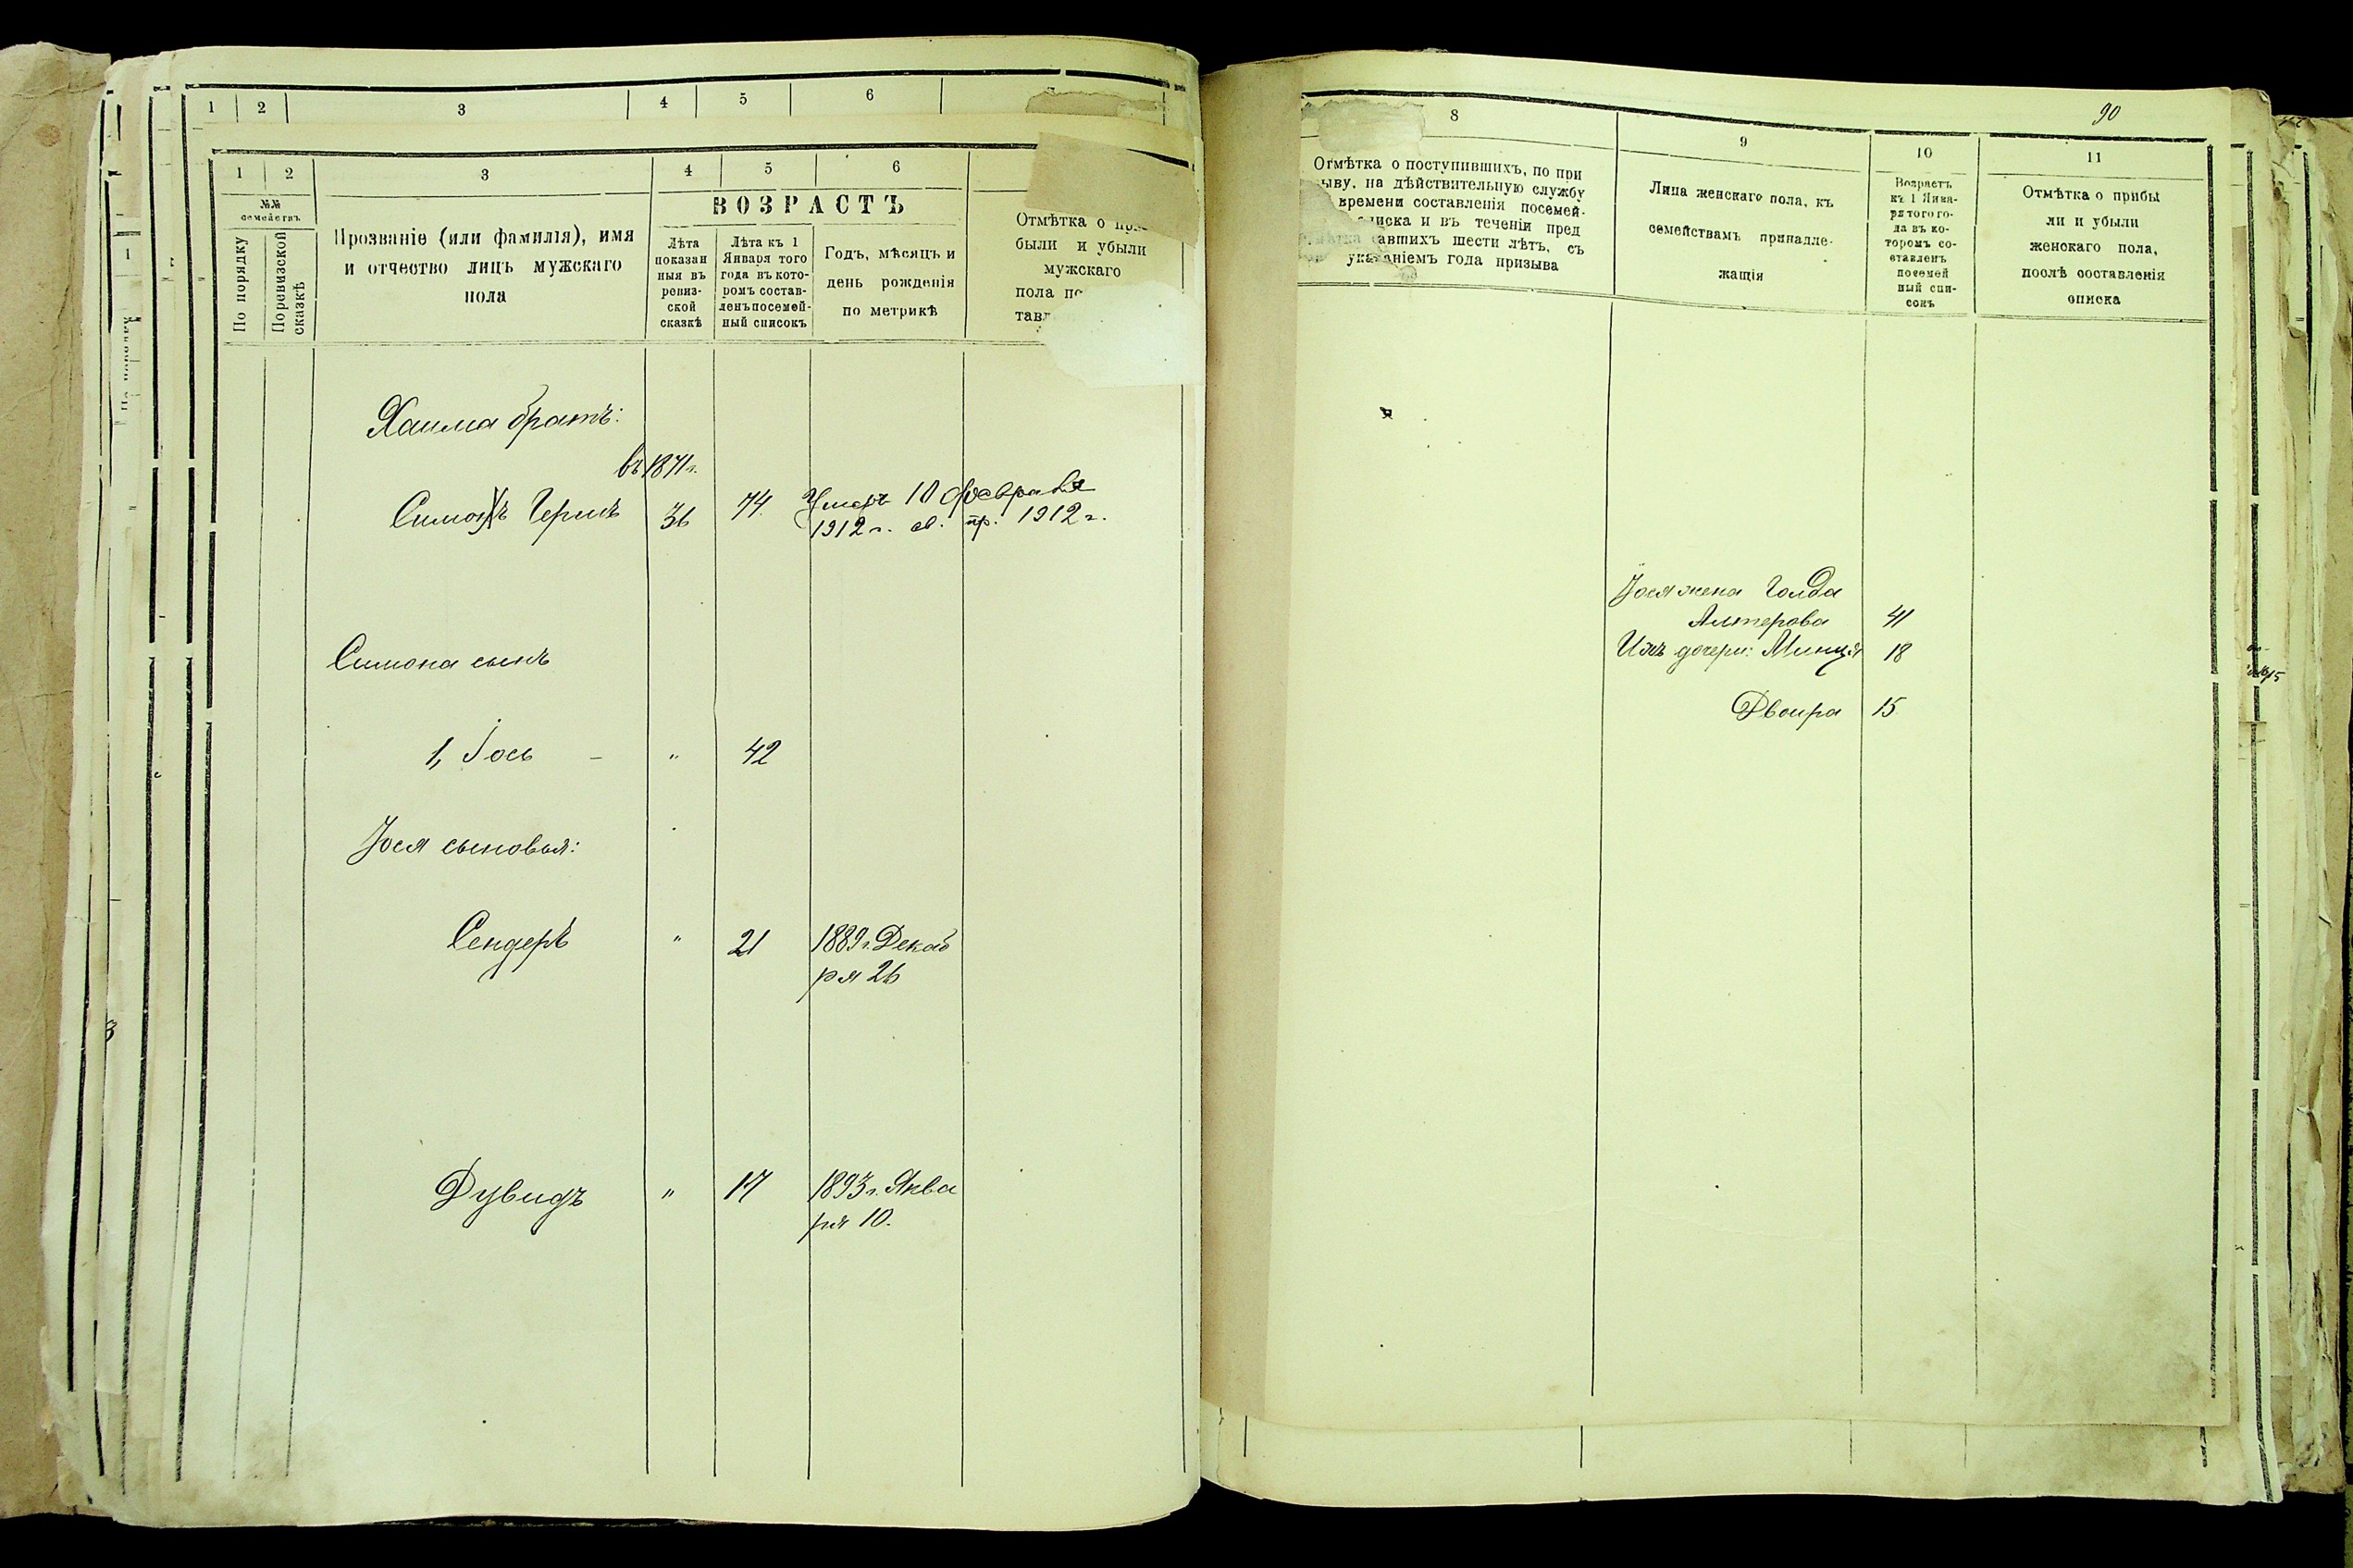 1 2 3 4 5 6
1 2 3 4 5 6
№№ семействъ
По порядку
Поревизской сказкѣ
Прозваніе (или фамилія), имя
и отчество лицъ мужскаго
пола
ВОЗРАСТЪ
Лѣта
показан
ныя въ
ревиз-
ской
сказкѣ
Лѣта къ 1
Января того
года въ кото-
ромъ состав-
ленъ посемей-
ный списокъ
Годъ, мѣсяцъ и
день рожденія
по метрикѣ
Отмѣтка о
были и убыли
мужскаго
пола
Хаима братъ:
въ 1871г.
Симонъ Гершъ 36 74 Умеръ 10 февраля
1912 г. св. пр. 1912 г.
Симона сынъ
1, Іось – " 42
Іося сыновья:
Сендеръ " 21 1889 г. Декаб
ря 26
Дувидъ " 17 1893 г. Янва
ря 10.
90
8 9 10 11
Отмѣтка о поступившихъ, по при
ыву, на дѣйствительную службу
времени составленія посемей-
иска и въ теченіи пред
авшихъ шести лѣтъ, съ
указаніемъ года призыва
Лица женскаго пола, къ
семействамъ принадле-
жащія
Возрастъ
къ 1 Янва-
ря того го-
да въ ко-
торомъ со-
ставленъ
посемей
ный спи-
сокъ
Отмѣтка о прибы
ли и убыли
женскаго пола,
послѣ составленія
списка
Іося жена Голда
Алтерова 41
Ихъ дочери: Минця 18
Двоира 15